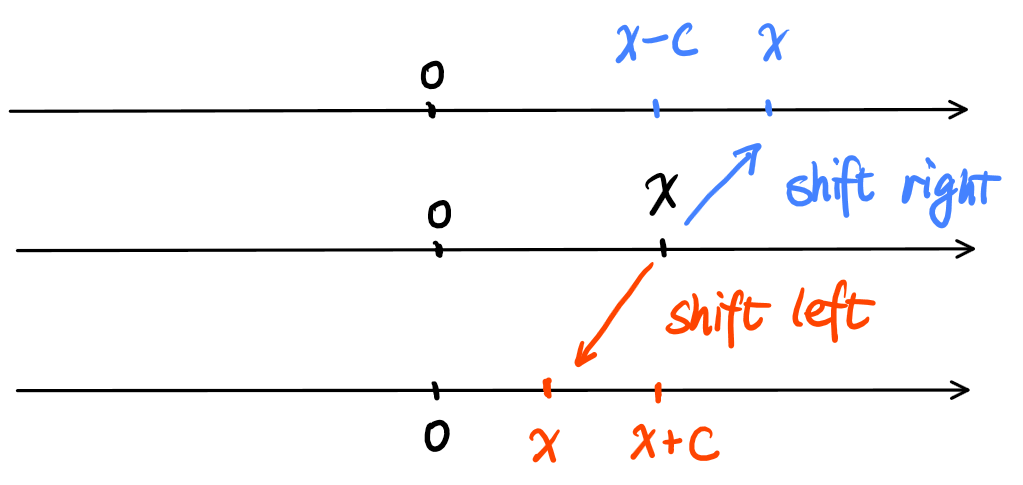 0 x-c x
shift right
0 x
shift left
0 x x+c